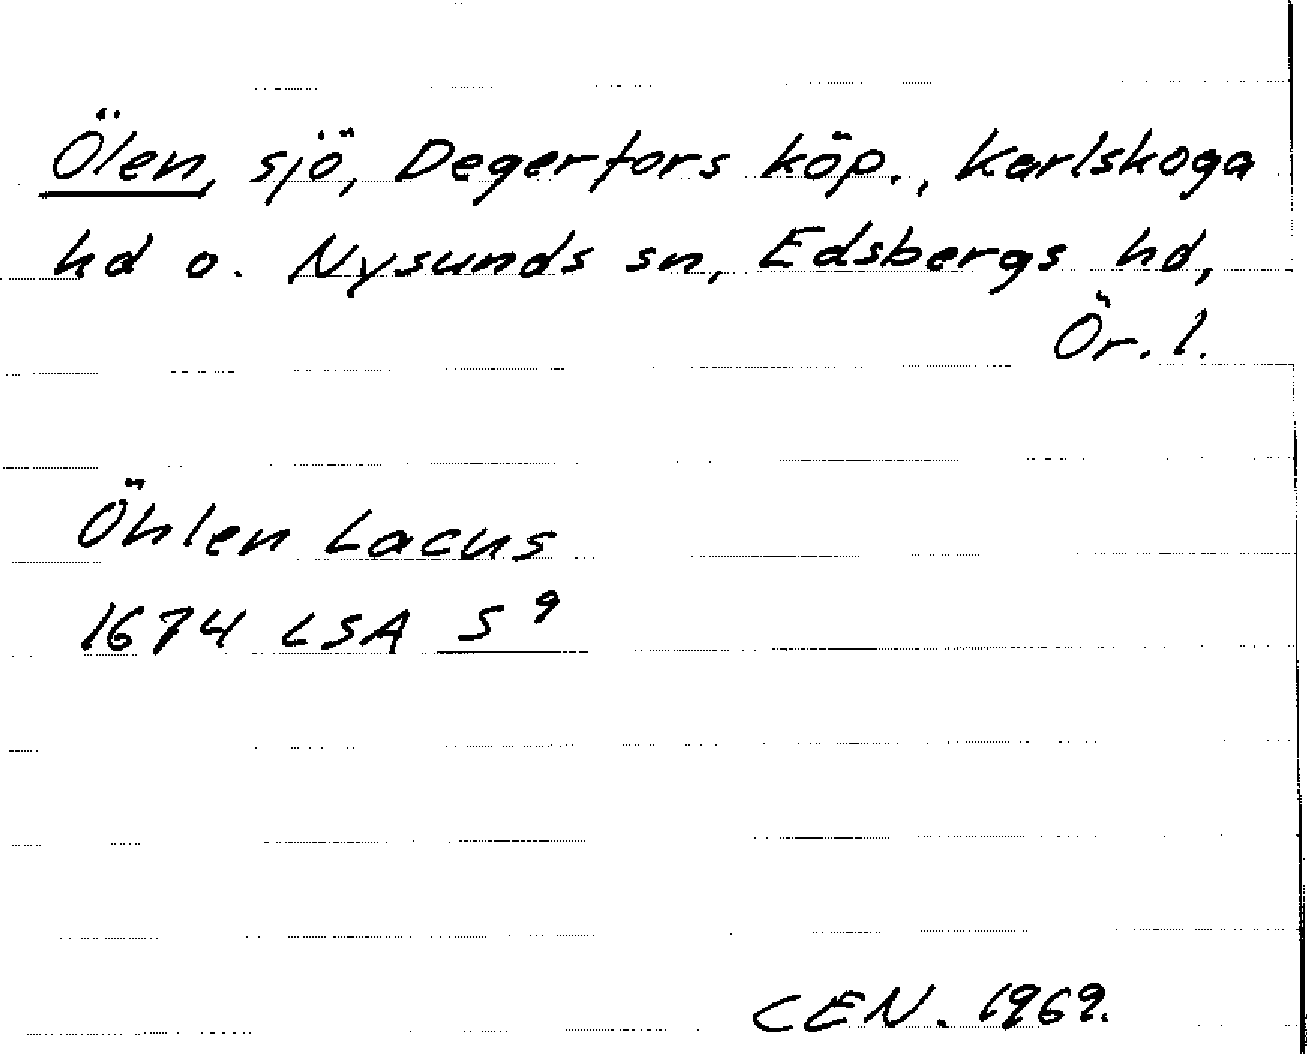 Ölen, sjö, Degerfors köp., Karlskoga
hd o. Nysunds sn, Edsbergs hd,
Ör. l.
Öhlen Lacus
1674 LSA S 9
CEN. 1969.